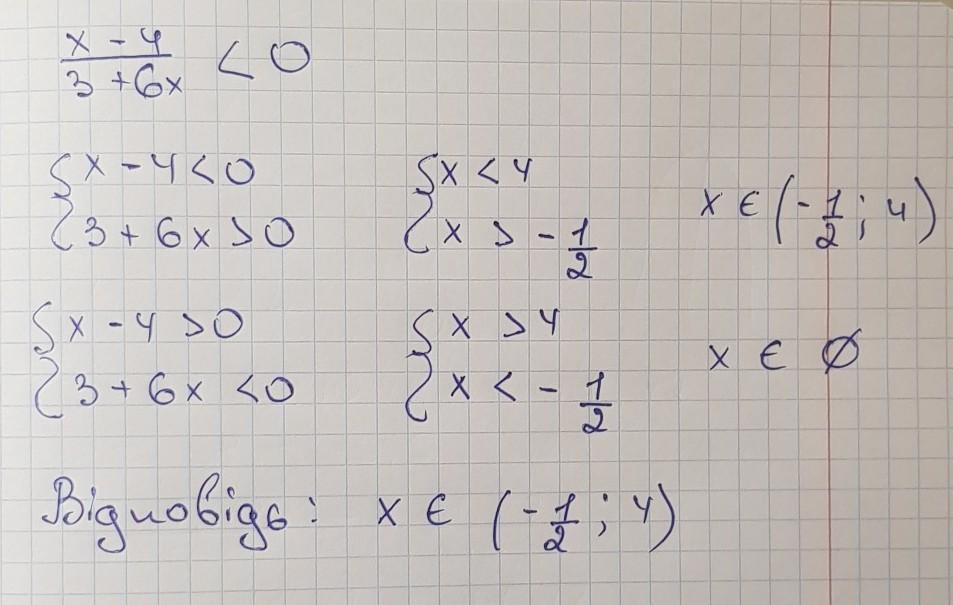 x - 4 / 3 + 6x < 0
{ x - 4 < 0 { x < 4
{ 3 + 6x > 0 { x > - 1/2 x ∈ (- 1/2 ; 4)
{ x - 4 > 0 { x > 4
{ 3 + 6x < 0 { x < - 1/2 x ∈ ∅
Відповідь: x ∈ (- 1/2 ; 4)